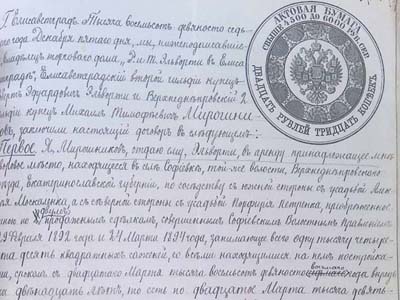 Г. Елисаветградъ. Тысяча восемьсотъ девяносто седь-
го года Декабря пятаго дня, мы, нижеподписавшіе-
владелецъ торговаго дома „Р. и Т. Эльворти въ Елиса-
градѣ, Елисаветградскій второй гильдіи купец
Эдуардовичъ Эльворти и Верхнеднѣпровскій 2
гильдіи купецъ Михаилъ Тимофеевичъ Мирошни-
овъ, заключили настоящій договоръ въ слѣдующемъ:
Первое. Я, Мирошниковъ, отдаю ему, Эльворти, въ аренду принадлежащее мнѣ
воровое мѣсто, находящееся въ селѣ Софіевкѣ, той-же волости, Верхнеднѣпровскаго
уѣзда, Екатеринославской губерніи, по сосѣдству съ южной стороны съ усадьбой
Мокалука, а съ сѣверной стороны съ усадьбой Порфирія Петренка, пріобрѣтенное
по двумъ продажнымъ сдѣлкамъ, совершеннымъ Софіевскимъ Волостнымъ Правленіемъ
29 Февраля 1892 года и 24 Марта 1894 года, занимающее всего одну тысячу четыре-
десять квадратныхъ саженей, со всѣми находящимися на немъ постройка-
срокомъ съ двадцатаго Марта тысяча восемьсотъ девяносто года впредь
двѣнадцать лѣтъ, то есть по двадцатое Марта тысяча девять-
АКТОВАЯ БУМАГА
СВЫШЕ 4500 ДО 6000 РУБ. СЕР.
ДВАДЦАТЬ РУБЛЕЙ ТРИДЦАТЬ КОПѢЕКЪ